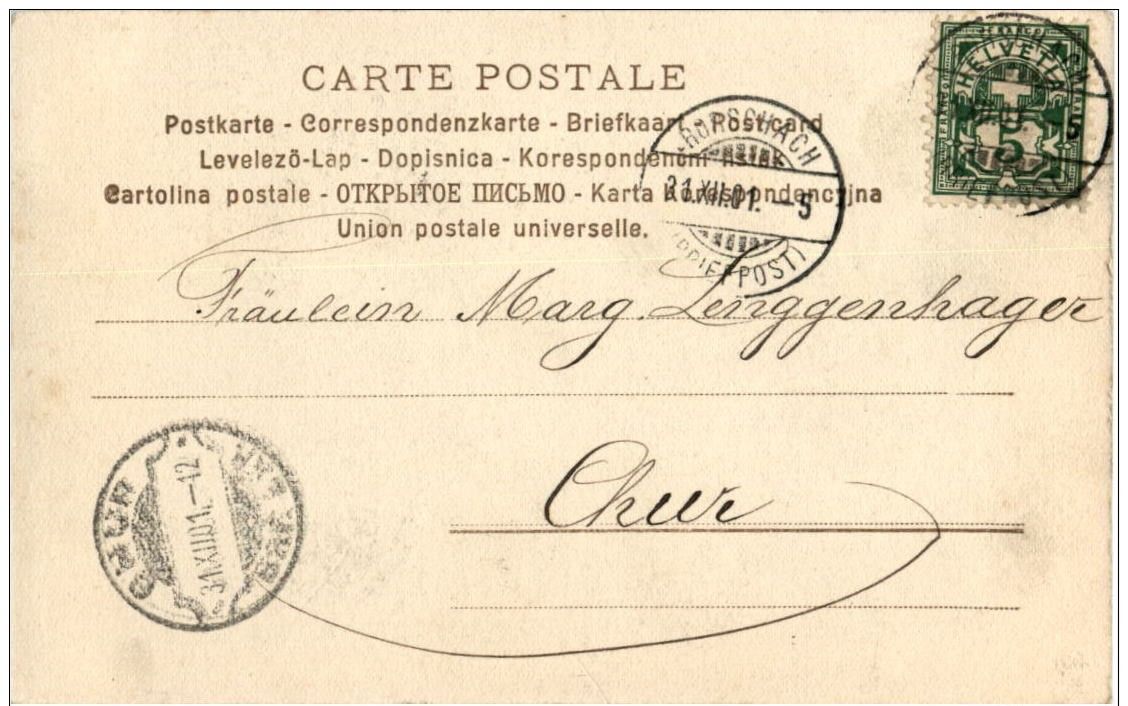 CARTE POSTALE
Postkarte - Correspondenzkarte - Briefkaart - Postcard
Levelezö-Lap - Dopisnica - Korespondenční lístek
Cartolina postale - ОТКРЫТОЕ ПИСЬМО - Karta Korespondencyjna
Union postale universelle.
HELVETIA
5
RORSCHACH
31.XII.01.-5
(BRIEFPOST)
Fräulein Marg. Lenggenhager
Chur
CHUR
31.XII.01.-12